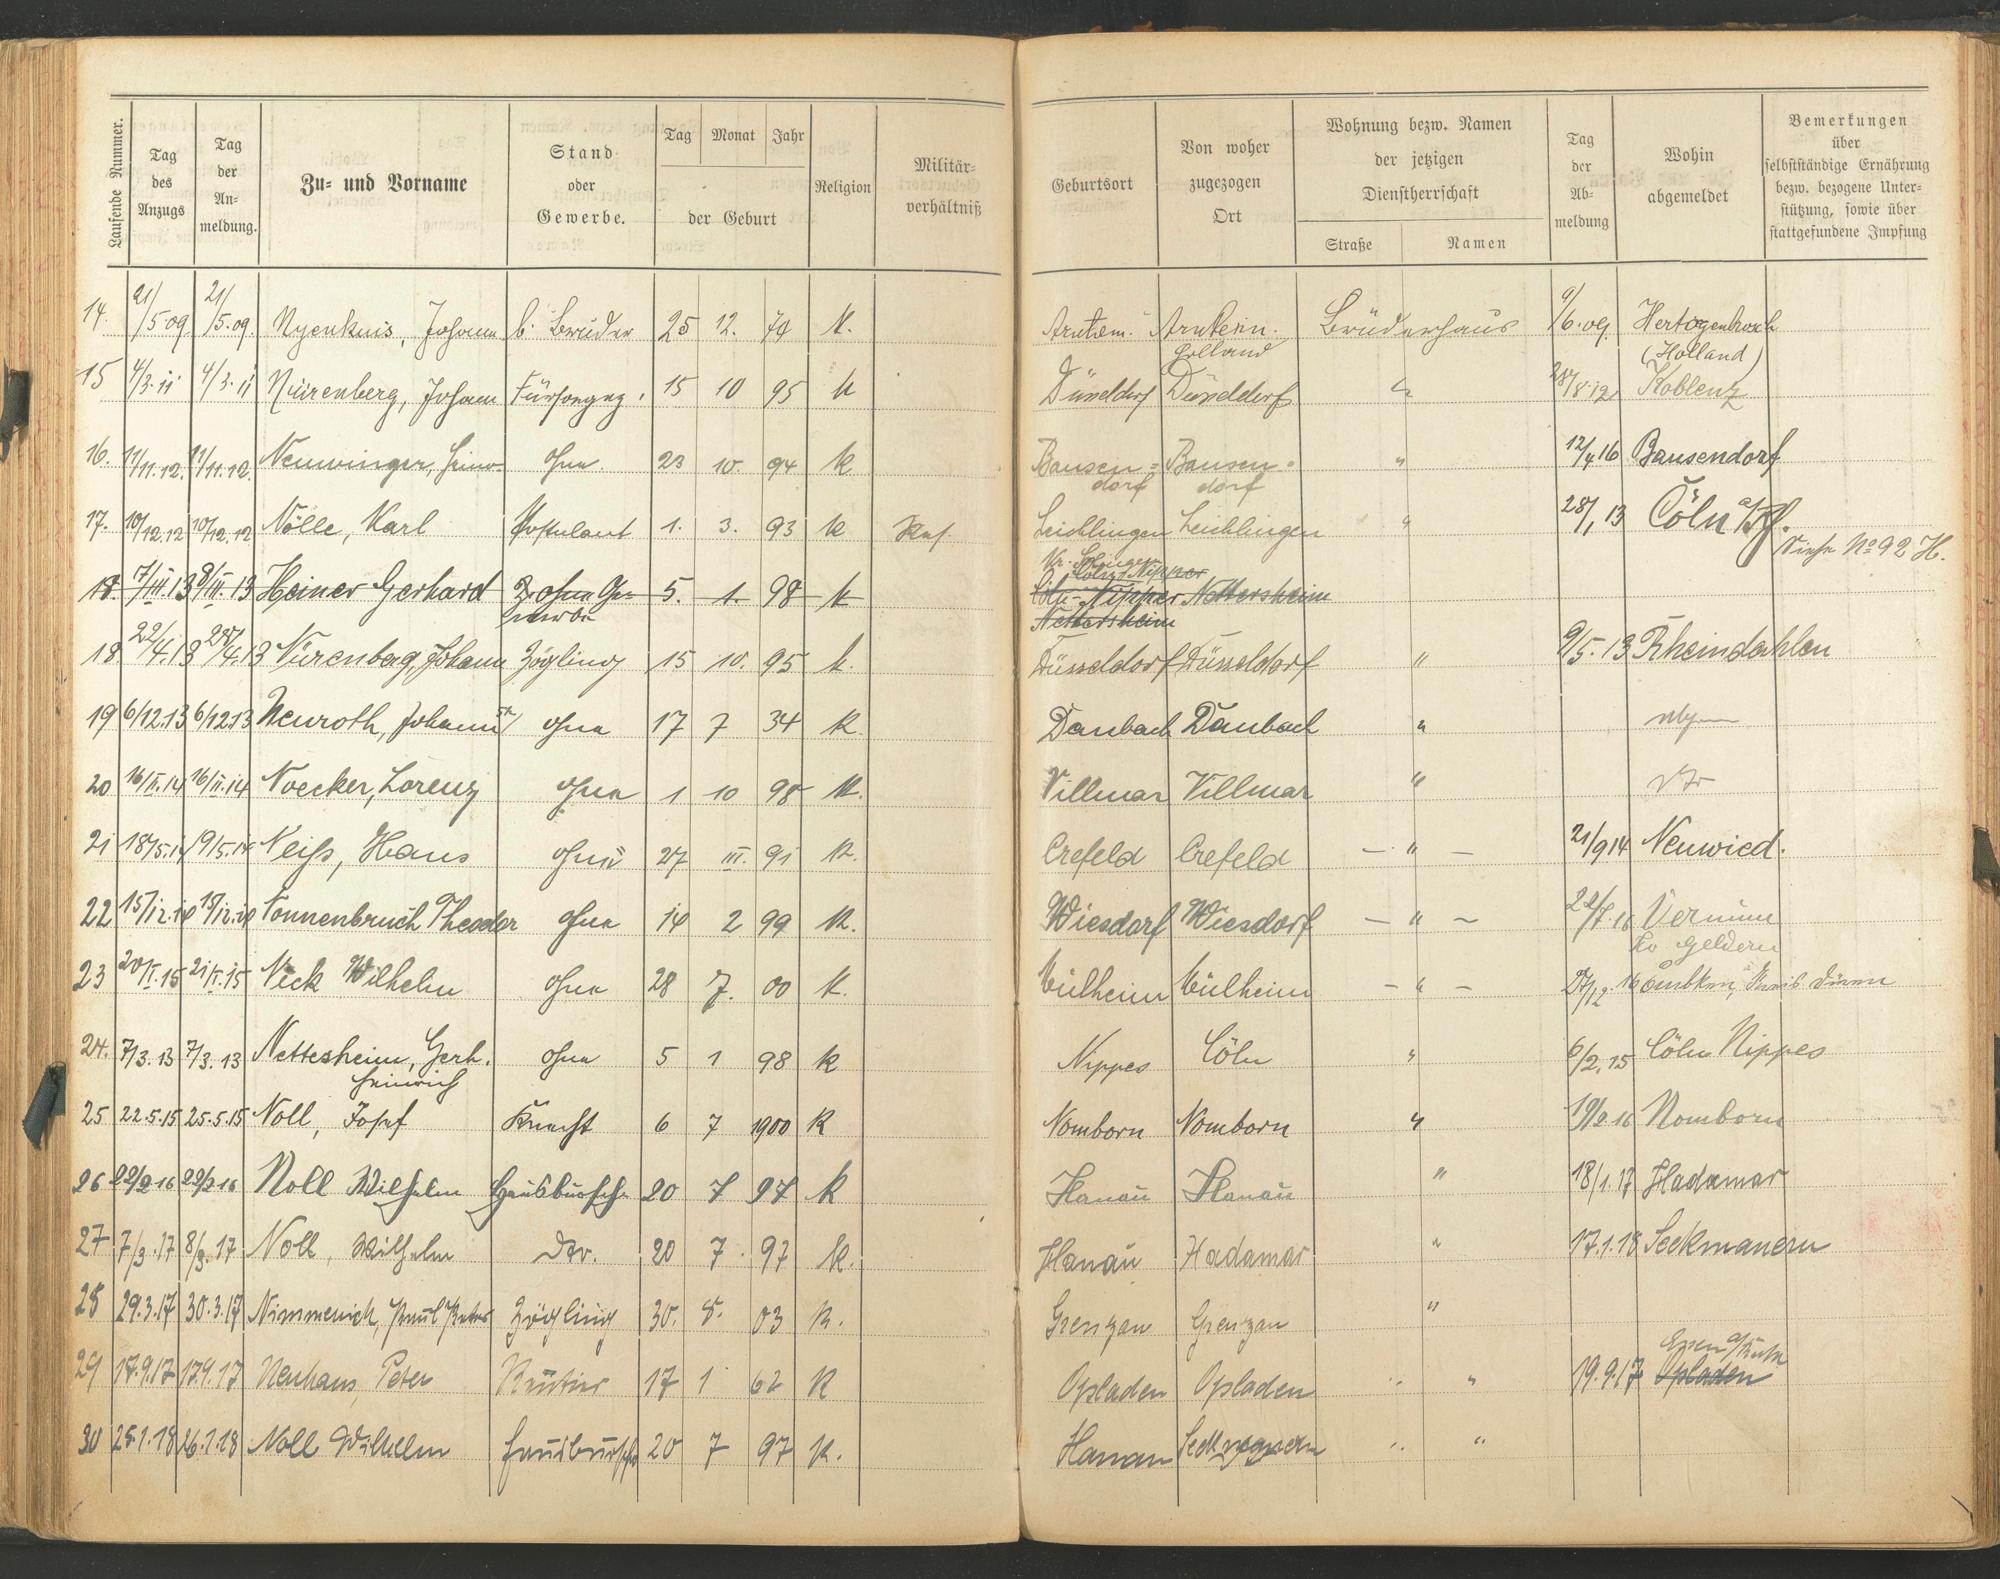 Laufende Nummer.
Tag des Anzugs
Tag der Anmeldung.
Zu- und Vorname
Stand oder Gewerbe.
Tag Monat Jahr
der Geburt
Religion
Militärverhältniß
Geburtsort
Von woher zugezogen Ort
Wohnung bezw. Namen der jetzigen Dienstherrschaft
Straße Namen
Tag der Abmeldung
Wohin abgemeldet
Bemerkungen über selbstständige Ernährung bezw. bezogene Unterstützung, sowie über stattgefundene Impfung
14. 21/5 09 21/5. 09. Nyenhuis, Johann b. Bruder 25 12. 74 k. Arnheim. Arnheim. Holland Brüderhaus 9/6. 09. Hertogenbosch (Holland)
15 4/3. 11 4/3. 11 Nürenberg, Johann 15 10 95 k Düsseldorf Düsseldorf " 28/8. 12 Koblenz
16. 11/11. 12. 11/11. 12. Neuwinger, ohne 23 10. 94 k Bausen=dorf Bausen=dorf " 12/4 16 Bausendorf
17. 10/12. 12 10/12. 12 Nölle, Karl Postulant 1. 3. 93 k Leichlingen Leichlingen " 28/1 13 Cöln a/Rh.
Siehe No 92 H.
18. 7/III. 13 8/III. 13 Heiner Gerhard Z. ohne Gewerbe 5. 1. 98 k Cöln-Nippes Nettersheim
Nettersheim
18. 22/4. 13 Nürenberg, Johann Zögling 15 10. 95 k. Düsseldorf Düsseldorf " 9/5. 13 Rheindahlen
19 6/12.13 6/12.13 Neuroth, Johann ohne 17 7 34 k Danbach Danbach "
20 16/II. 14 16/II. 14 Noecker, Lorenz ohne 1 10 98 K. Villmar Villmar "
21 18/5.14 19/5.14 Neiß, Hans ohne 27 III. 91 K. Crefeld Crefeld — " — 21/9 14 Neuwied.
22 15/12.14 15/12.14 Nonnenbruch Theodor ohne 14 2 99 K. Wiesdorf Wiesdorf — " — 22/7. 16 Vernum Kr. Geldern
23 20/I. 15 21/I. 15 Neck Wilhelm ohne 28 7. 00 K. Mülheim Mülheim — " — 27/12. 16 Kreis Düren
24. 7/3. 13 7/3. 13 Nettesheim, Gerh. Heinrich ohne 5 1 98 k Nippes Cöln " 6/2. 15 Cöln Nippes
25 22.5.15 25.5.15 Noll, Josef Knecht 6 7 1900 K Nomborn Nomborn " 19/2 16 Nomborn
26 22/2 16 22/2 16 Noll Wilhelm Hausbursche 20 7 97 k Hanau Hanau " 18/1. 17 Hadamar
27 7/3. 17 8/3. 17 Noll, Wilhelm Do. 20 7. 97 k. Hanau Hadamar " 17.1.18 Seckmauern
28 29.3.17 30.3.17 Nimmerich, Paul Peter Zögling 30. 8. 03 k. Grenzau Grenzau "
29 17.9.17 17.9.17 Neuhaus, Peter Rentier 17 1 62 K Opladen Opladen " " 19.9.17 Essen a/Ruhr Opladen
30 25.1.18 26.1.18 Noll Wilhelm Hausbursche 20 7 97 K. Hanau Seckmauern " "